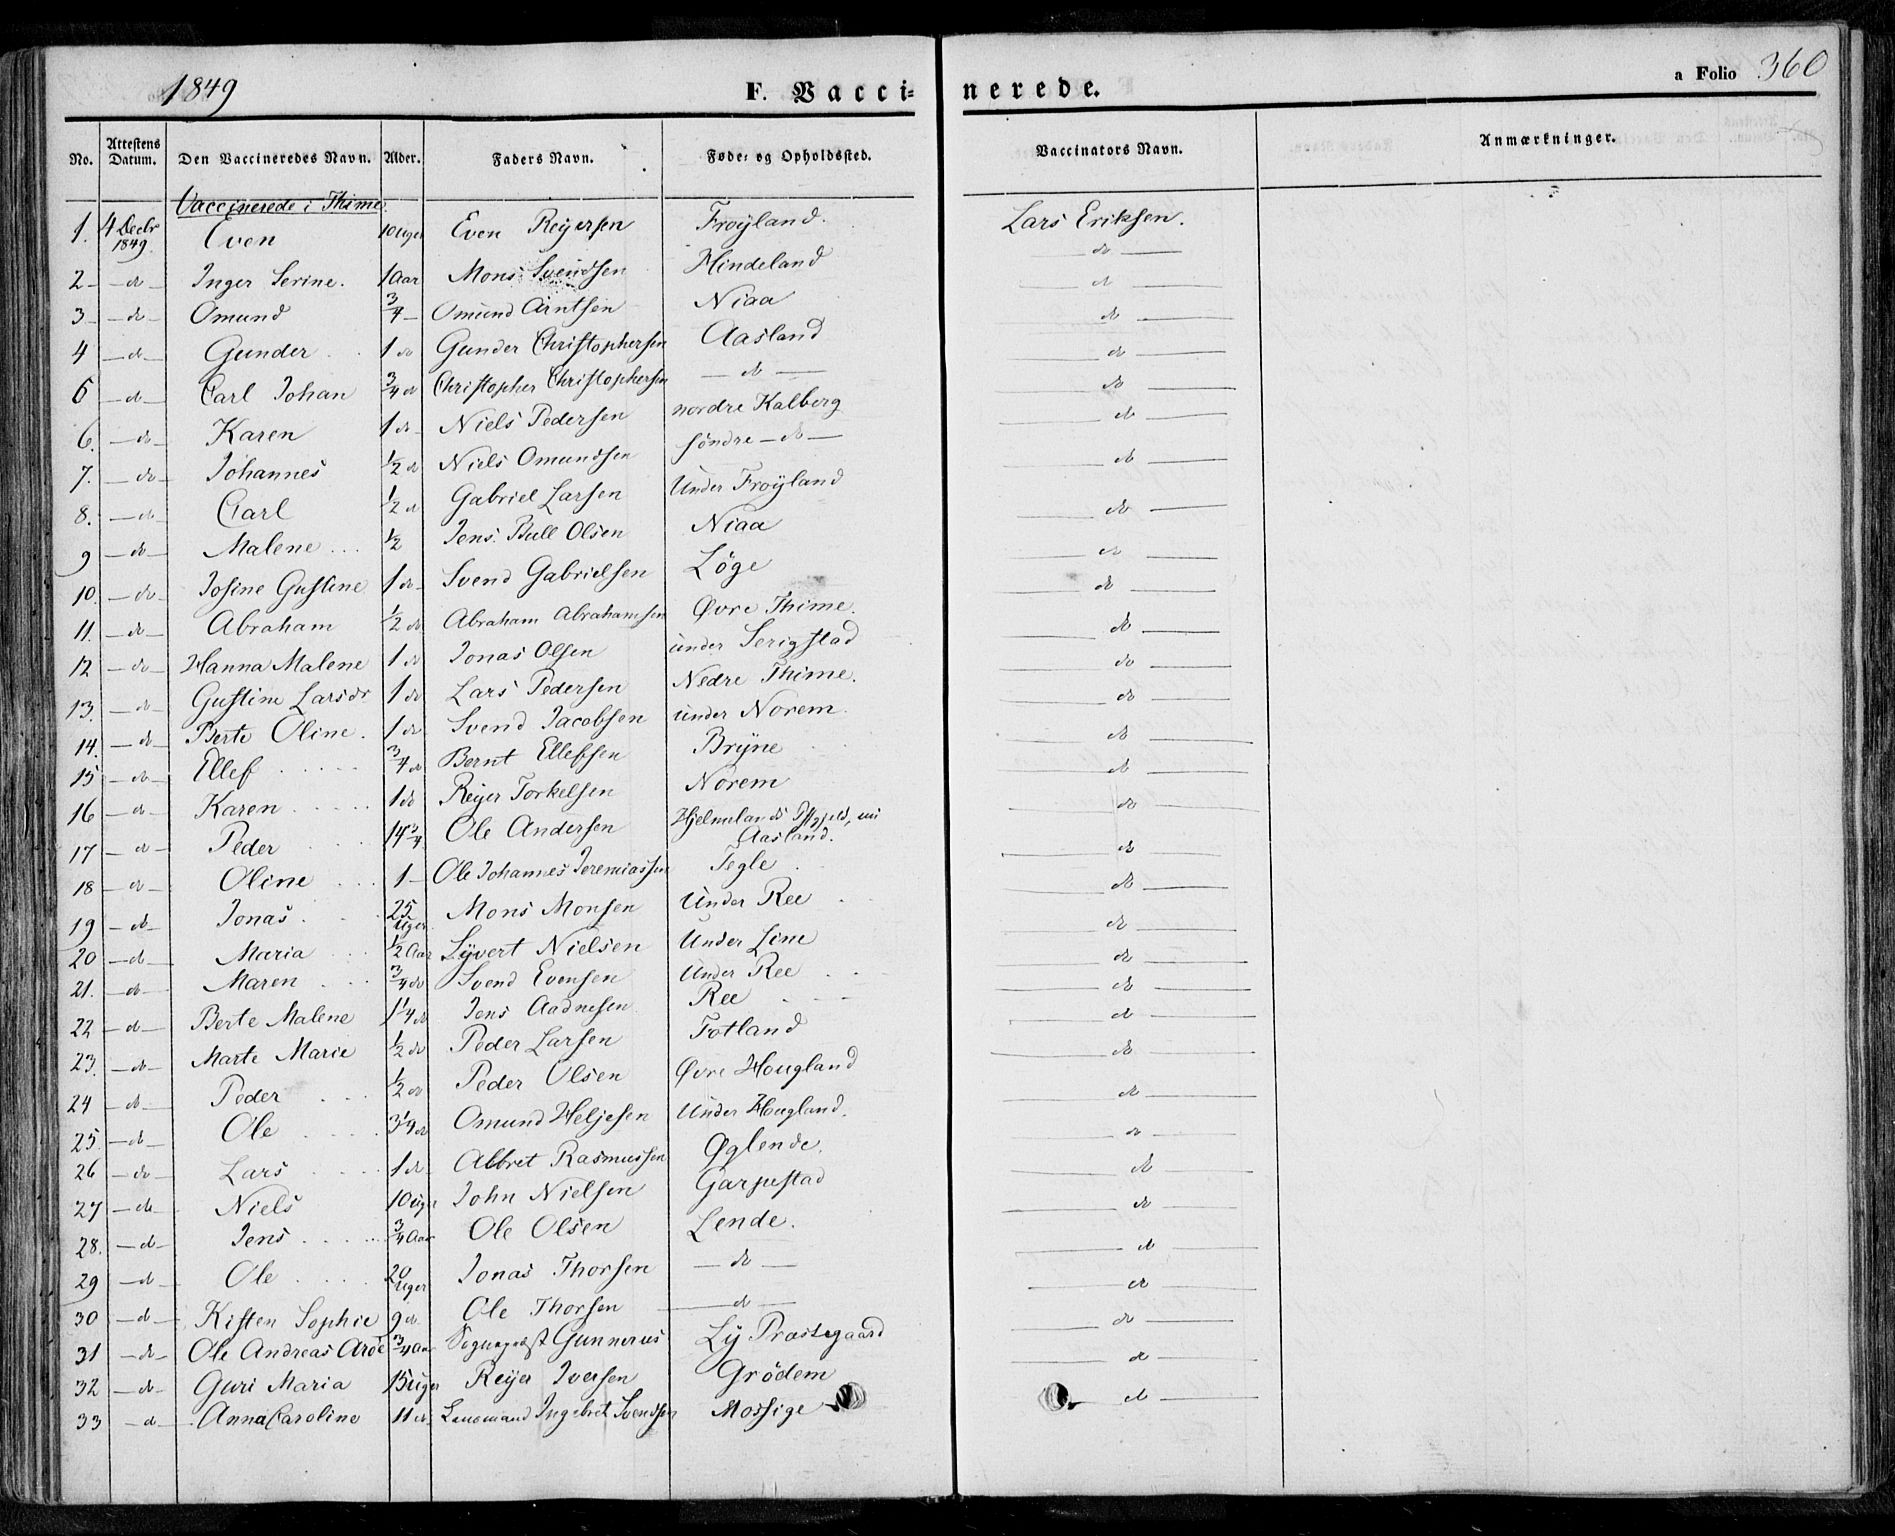 1849 F. Vacci- nerede. a Folio 360
No. Attestens Datum. Den Vaccineredes Navn. Alder. Faders Navn. Føde- og Opholdssted. Vaccinators Navn. Anmærkninger.
Vaccinerede i Thime.
1. 4 Decbr 1849. Even 10 Uger Even Reyersen Frøyland. Lars Eriksen.
2 - do - Inger Serine. 1 Aar Mons Svendsen Hindeland - do -
3 - do - Omund 3/4 - Omund Arntsen Niaa - do -
4 - do - Gunder 1 do Gunder Christophersen Aasland - do -
5 - do - Carl Johan 3/4 do Christopher Christophersen - do - - do -
6. - do - Karen 1 do - Niels Pedersen nordre Kalberg - do -
7. - do - Johannes 1/2 do Niels Omundsen søndre - do - - do -
8. - do - Carl 1/2 do Gabriel Larsen Under Frøyland - do -
9 - do - Malene 1/2 Jens Bull Olsen Niaa - do -
10. - do - Josine Gustine 1 do - Svend Gabrielsen Løge - do -
11. - do - Abraham 1/2 do Abraham Abrahamsen Øvre Thime. - do -
12 - do - Hanna Malene 1 do Jonas Olsen under Serigstad - do -
13. - do - Gustine Larsdr 1 do Lars Pedersen Nedre Thime. - do -
14. - do - Berte Oline. 1 do Svend Jacobsen under Norem. - do -
15 - do - Ellef 3/4 do Bernt Ellefsen Bryne - do -
16 - do - Karen 1 do Reyer Torkelsen Norem - do -
17 - do - Peder 14 3/4 Ole Andersen Hjelmelands Aasland. - do -
18 - do - Oline 1 - Ole Johannes Jeremiassen Tegle - do -
19 - do - Jonas. 25 Uger. Mons Monsen Under Ree - do -
20 - do - Maria 1/2 Aar Syvert Nielsen Under Line - do -
21. - do - Maren 3/4 do Svend Evensen Under Ree - do -
22 - do - Berte Malene 1 1/4 do Jens Aadnesen Ree - do -
23. - do - Marte Marie 1/2 do Peder Larsen Fotland - do -
24 - do - Peder 1/2 do Peder Olsen Øvre Hougland - do -
25. - do - Ole 3 1/4 do Omund Heljesen Under Hougland. - do -
26 - do - Lars 1 do Albret Rasmussen Øglende. - do -
27 - do - Niels 10 uger John Nielsen Garpestad - do -
28. - do - Jens 3/4 Aar Ole Olsen Lende. - do -
29 - do - Ole 20 Uger Jonas Thorsen - do - - do -
30 - do - Kisten Sophie 9 do Ole Thorsen - do - - do -
31 - do - Ole Andreas 3/4 Aar Sognepræst Gunnerus Ly Præstegaard - do -
32 - do - Guri Maria 15 Uger Reyer Iversen Grödem - do -
33 - do - Anna Caroline 11 do Lensmand Ingebret Svendsen Mossige - do -